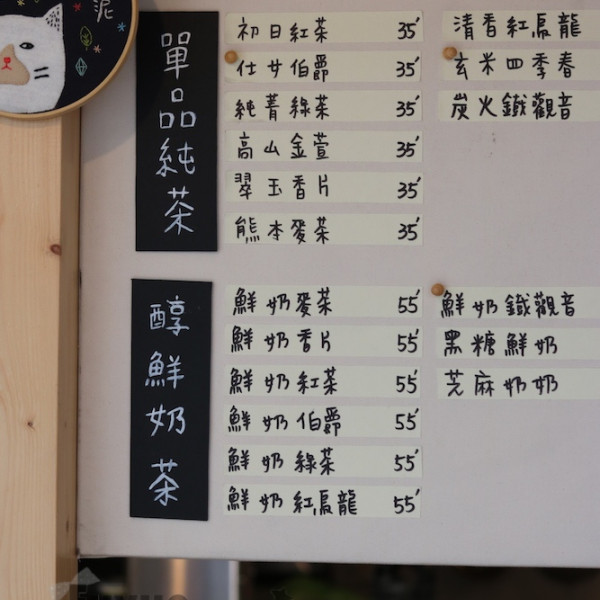 泥
單品純茶
初日紅茶 35
仕女伯爵 35
純菁綠茶 35
高山金萱 35
翠玉香片 35
熊本麥茶 35
清香紅烏龍
玄米四季春
炭火鐵觀音
醇鮮奶茶
鮮奶麥茶 55
鮮奶香片 55
鮮奶紅茶 55
鮮奶伯爵 55
鮮奶綠茶 55
鮮奶紅烏龍 55
鮮奶鐵觀音
黑糖鮮奶
芝麻奶奶